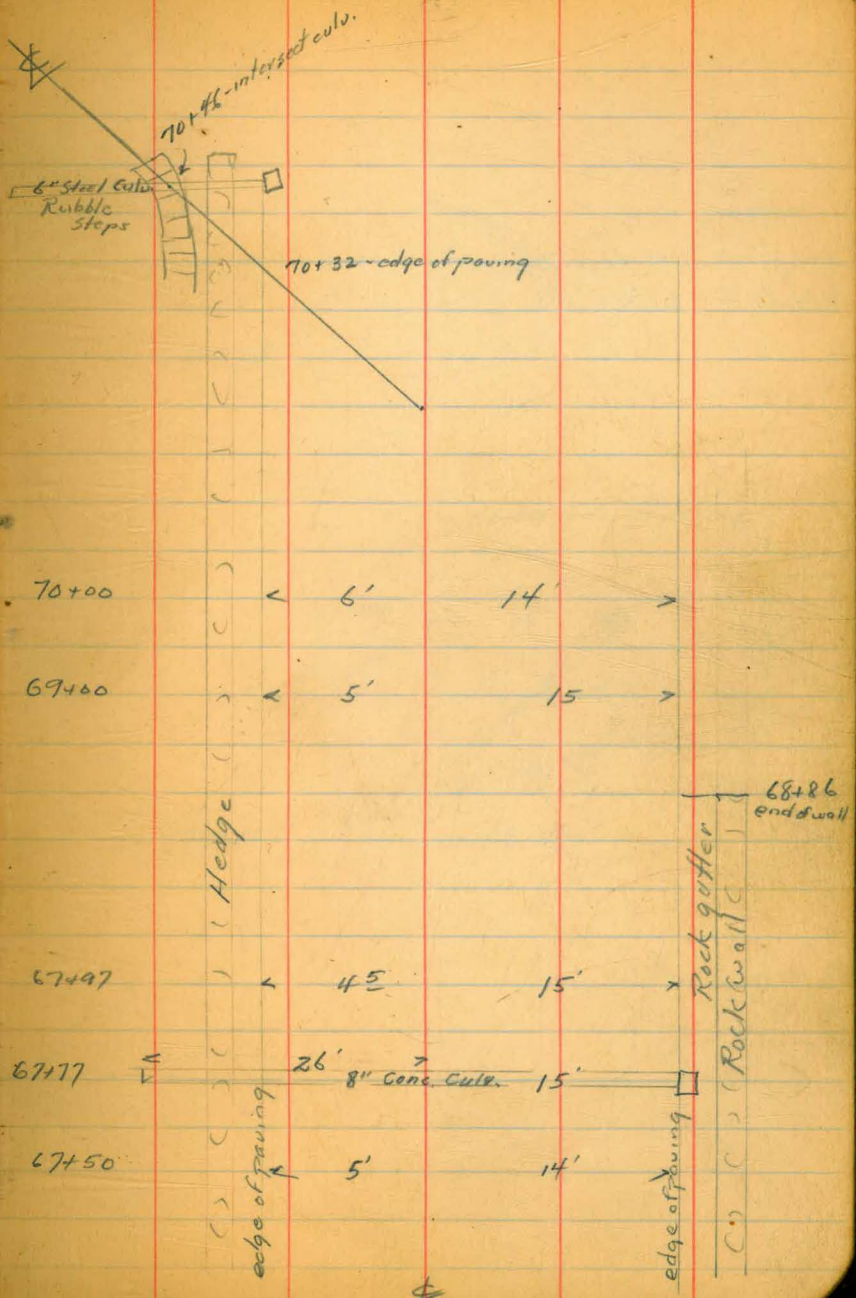 ℄
70+46-intersect culv.
6" Steel Culv.
Rubble
Steps
70+32-edge of paving
70+00 6' 14'
69+00 5' 15
68+86
end of wall
Hedge
Rock gutter
Rock wall
67+97 4 5 15'
67+77 26' 8" Conc. Culv. 15'
67+50 5' 14'
edge of paving
edge of paving
℄